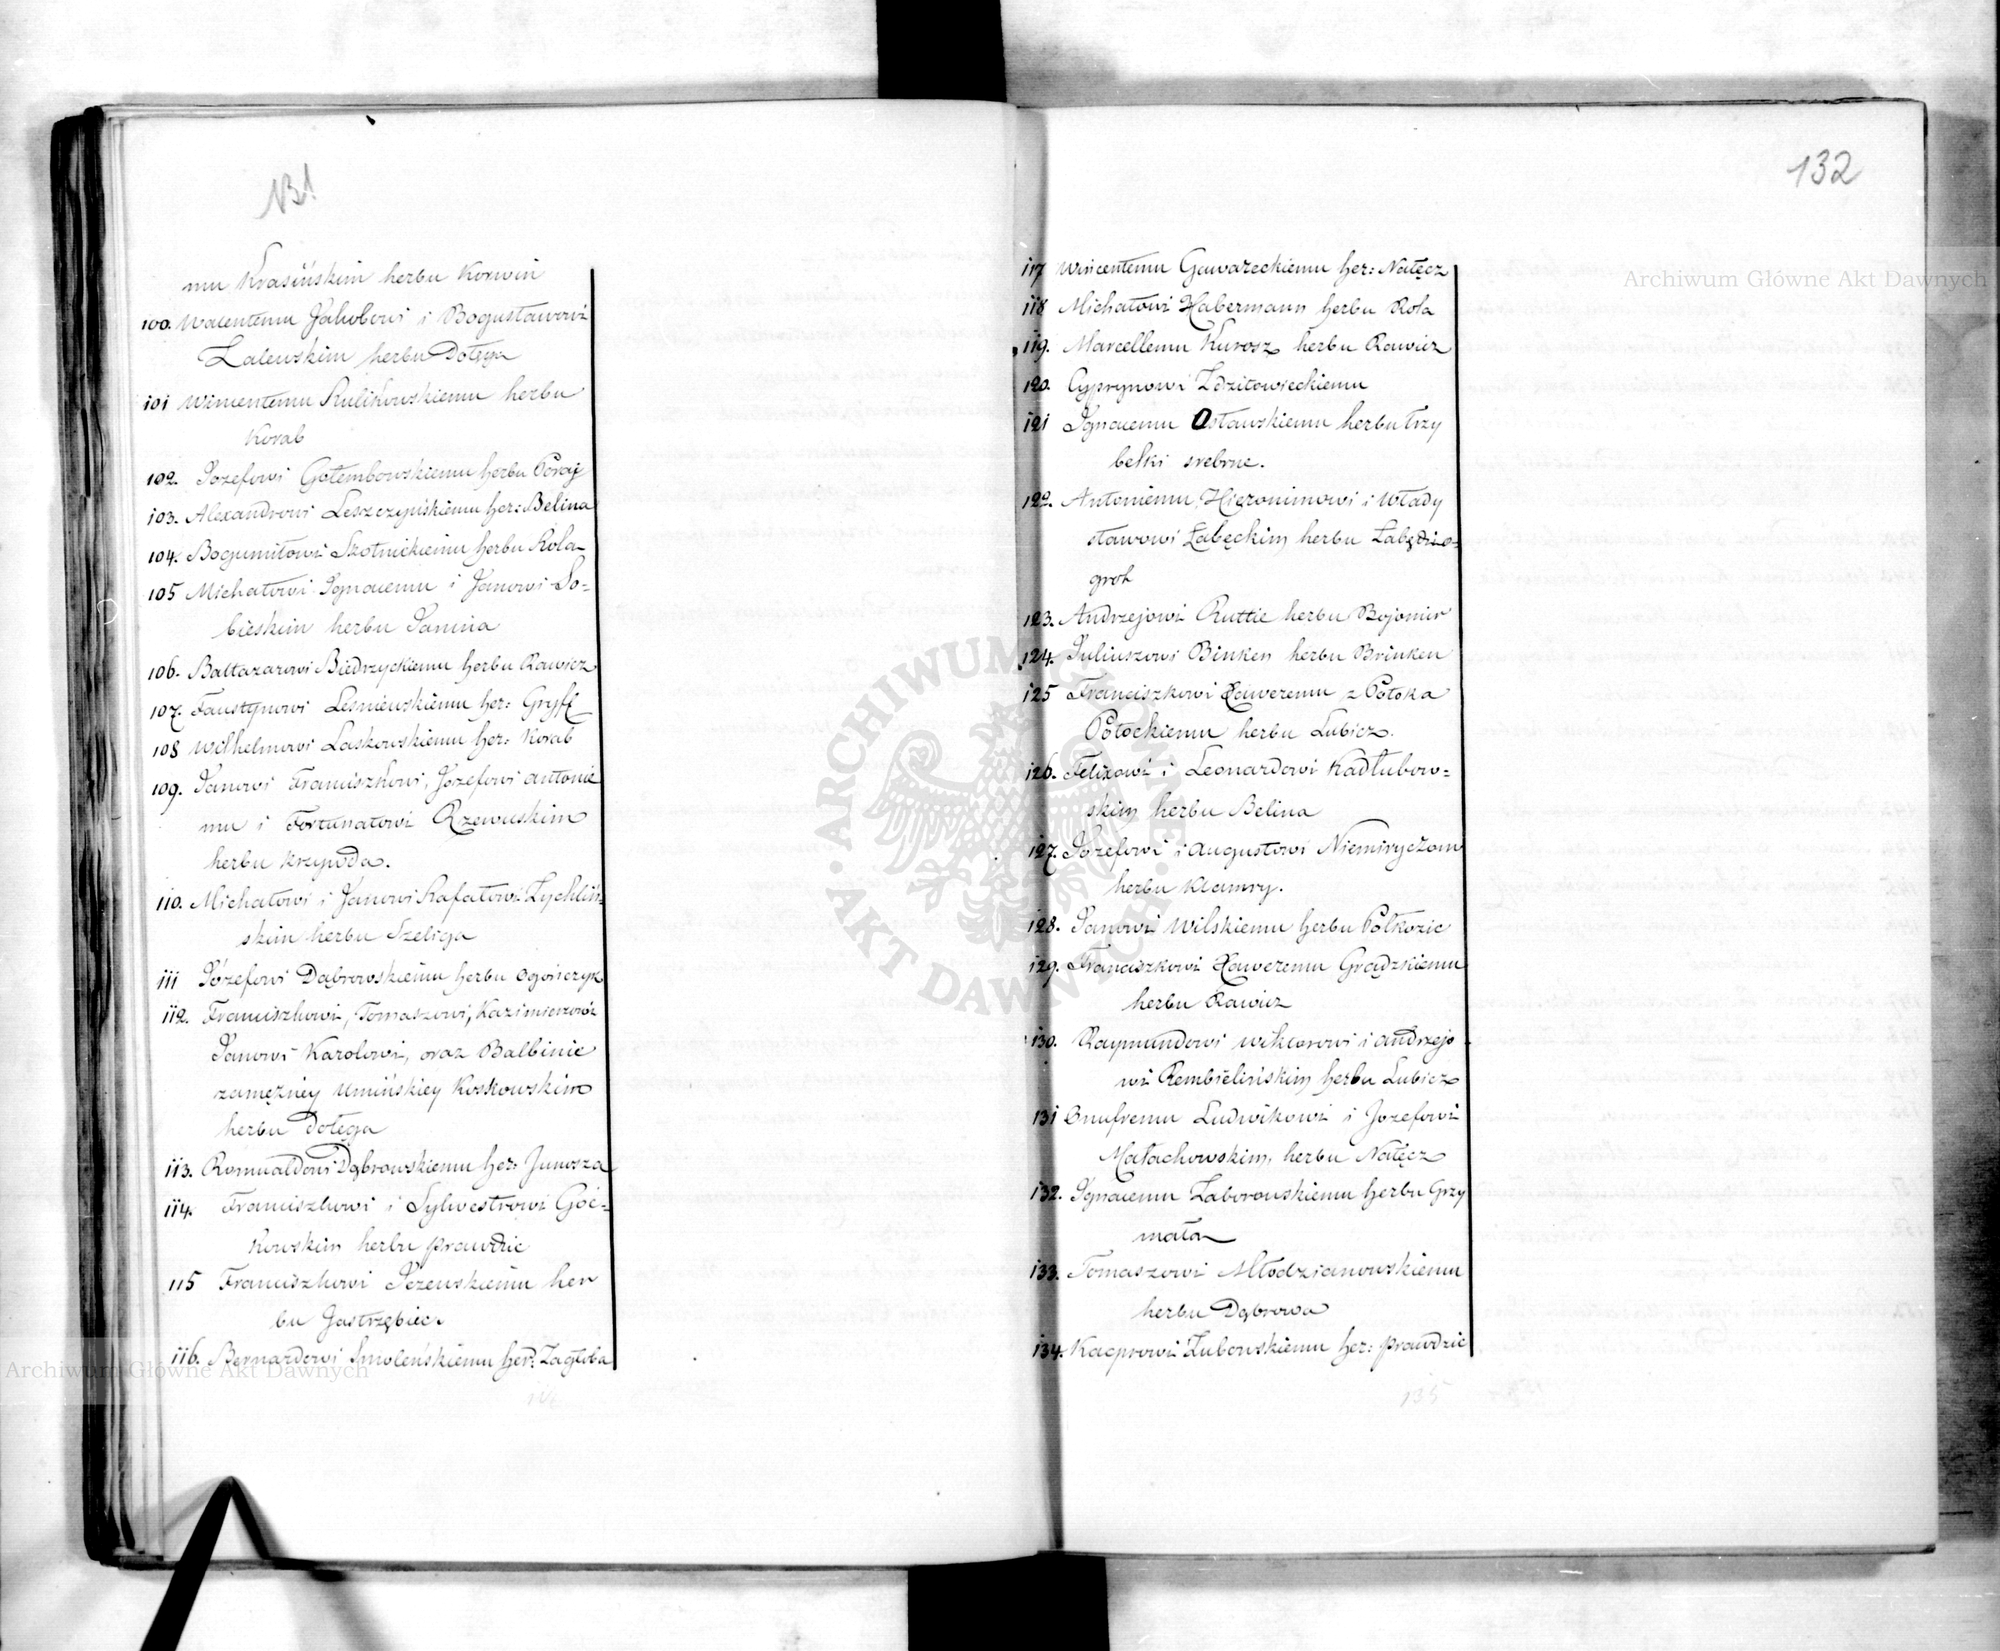 131
mu Krasińskim herbu Korwin
100. Walentemu Jakubowi i Bogusławowi
Zalewskim herbu Dołęga
101 Wincentemu Kulikowskiemu herbu
Korab
102. Jozefowi Gołembowskiemu herbu Poraj
103. Alexandrowi Leszczyńskiemu her: Belina
104. Bogumiłowi Szotnickiemu herbu Rola
105 Michałowi Ignacemu i Janowi So-
bieskim herbu Janina
106. Baltazarowi Biedrzyckiemu herbu Rawicz
107. Faustynowi Leśniewskiemu her: Gryff
108 Wilhelmowi Laskowskiemu her: Korab
109. Janowi Franciszkowi, Jozefowi Antonie
mu i Fortunatowi Rzewuskim
herbu Krzywda.
110. Michałowi i Janowi Rafałowi Zychliń-
skim herbu Szeliga
111 Józefowi Dąbrowskiemu herbu Ogończyk
112. Franciszkowi, Tomaszowi, Kazimierzowi
Janowi Karolowi, oraz Balbinie
zamężney Umińskiey Koskowskim
herbu Dołęga
113. Romualdowi Dąbrowskiemu her: Junosza
114. Franciszkowi i Sylwestrowi Goć-
kowskim herbu Prawdzic
115 Franciszkowi Jezewskiemu her
bu Jastrzębiec
116. Bernardowi Smoleńskiemu her: Zagłoba
132
117 Wincentemu Gawareckiemu her: Nałęcz
118 Michałowi Habermann herbu Rola
119. Marcellemu Kurosz herbu Rawicz
120. Cypryanowi Zdzitowieckiemu
121 Ignacemu Osławskiemu herbu trzy
belki srebrne.
122. Antoniemu, Hieronimowi i Włady
sławowi Łabęckim herbu Łabędzio-
groh
123. Andrzejowi Ruttie herbu Bojomir
124. Juliuszowi Binken herbu Brinken
125 Franciszkowi Xaweremu z Potoka
Potockiemu herbu Lubicz.
126. Felixowi i Leonardowi Kadłubow-
skim herbu Belina
127. Józefowi i Augustowi Niemiryczom
herbu Klamry.
128. Janowi Wilskiemu herbu Półkozic
129. Franciszkowi Xaweremu Grądzkiemu
herbu Rawicz
130. Raymundowi Wiktorowi i Andrzejo
wi Rembielińskim herbu Lubicz
131 Onufremu Ludwikowi i Jozefowi
Małachowskim, herbu Nałęcz
132. Ignacemu Zaborowskiemu herbu Grzy
mała
133. Tomaszowi Młodzianowskiemu
herbu Dąbrowa
134. Kacprowi Zubowskiemu her: Prawdzic
135
Archiwum Główne Akt Dawnych
Archiwum Główne Akt Dawnych
ARCHIWUM GŁÓWNE · AKT DAWNYCH ·